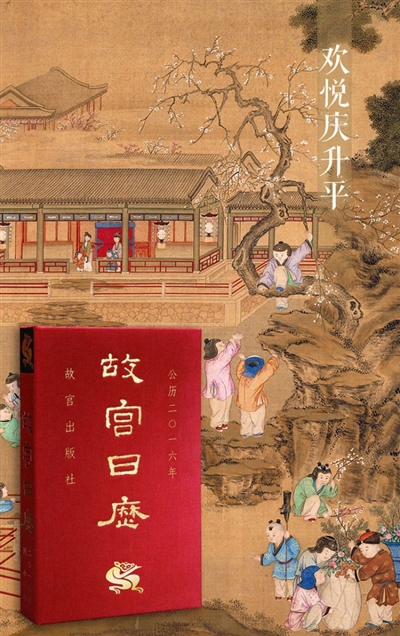 欢悦庆升平
公历二〇一六年
故宫日历
故宫出版社
故宫日历